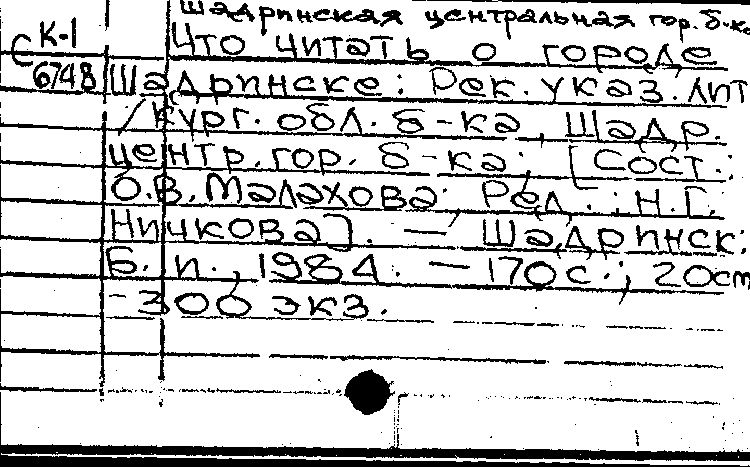 Шадринская центральная гор. б-ка
С К-1
6748
Что читать о городе
Шадринске: Рек. указ. лит
/ Кург. обл. б-ка, Шадр.
центр. гор. б-ка; [Сост.:
О.В. Малахова; Ред.: Н.Г.
Ничкова]. — Шадринск:
Б. и., 1984. — 170 с.; 20 см
- 300 экз.